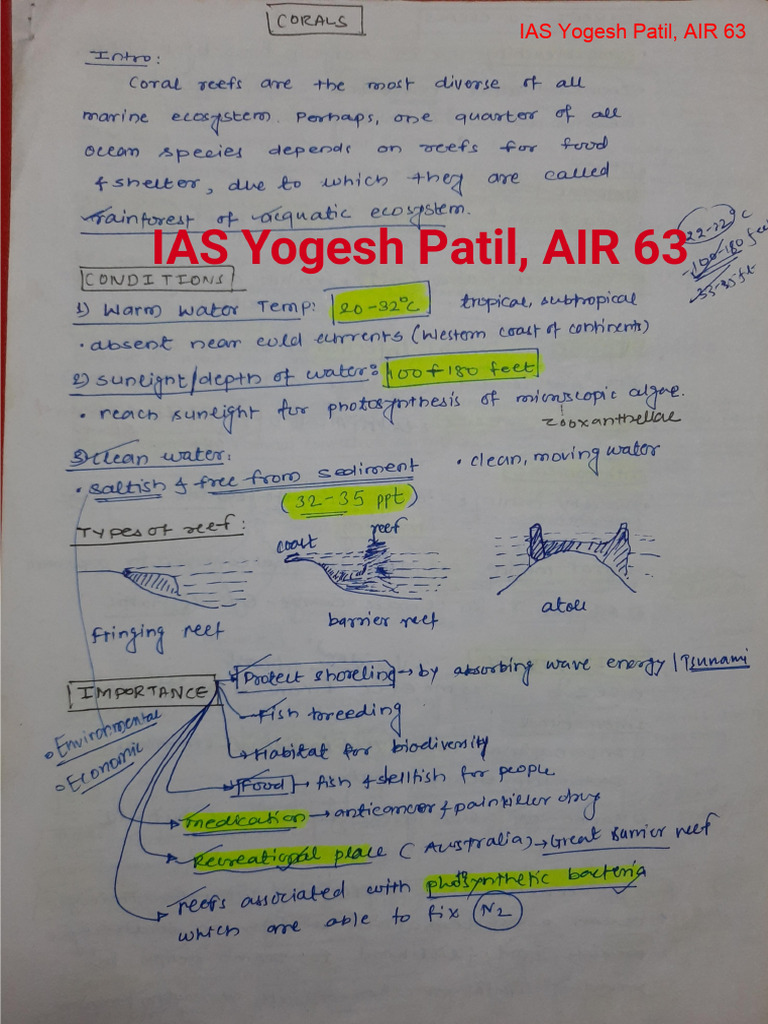 CORALS
IAS Yogesh Patil, AIR 63
Intro:
Coral reefs are the most diverse of all
marine ecosystem. Perhaps, one quarter of all
ocean species depends on reefs for food
& shelter, due to which they are called
rainforest of acquatic ecosystem.
22-22°C
100-180 feet
33-35 ft
IAS Yogesh Patil, AIR 63
CONDITIONS
1) Warm water Temp: 20-32°C tropical, subtropical
• absent near cold currents (Western coast of continents)
2) sunlight/depth of water: 100 f 180 feet
• reach sunlight for photosynthesis of microscopic algae.
zooxanthellae
3) clean water:
• clean, moving water
• saltish & free from sediment
(32-35 ppt)
Types of reef:
coast
reef
fringing reef
barrier reef
atoll
IMPORTANCE
• Environmental
• Economic
Protect shoreling → by absorbing wave energy / Tsunami
Fish breeding
Habitat for biodiversity
Food → fish & shellfish for people
medication → anticancer & painkiller drug
Recreational place (Australia) → Great Barrier reef
reefs associated with photosynthetic bacteria
which are able to fix N2